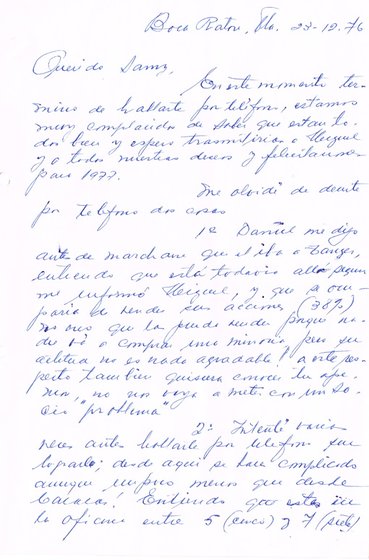 Boca Raton, Fla. 23-12-76
Querido Samy,
En este momento ter-
mino de hablarte por teléfono, estamos
muy complacidos de saber que estan to-
dos bien y espero trasmitirias a
y a todos nuestros deseos y felicitaciones
para 1977.
Me olvidé de decirte
por telefono dos cosas
1º Daniel me dijo
antes de marcharse que el iba a Tanger,
entiendo que está todavia alla, segun
me informó, y que se ocu-
paria de vender sus acciones (38%)
no creo que la puede vender porque na-
die va a comprar una minoria, pero su
actitud no es nada agradable! a este res-
pecto tambien quisiera conocer tu opi-
nion, no nos vaya a meter con un so-
cio "problema"
2º Intenté varias
veces antes hablarte por telefono sin
lograrlo; desde aqui se hace complicado
aunque un poco menos que desde
Caracas! Entiendo que estas en
la oficina entre 5 (cinco) y 7 (siete)